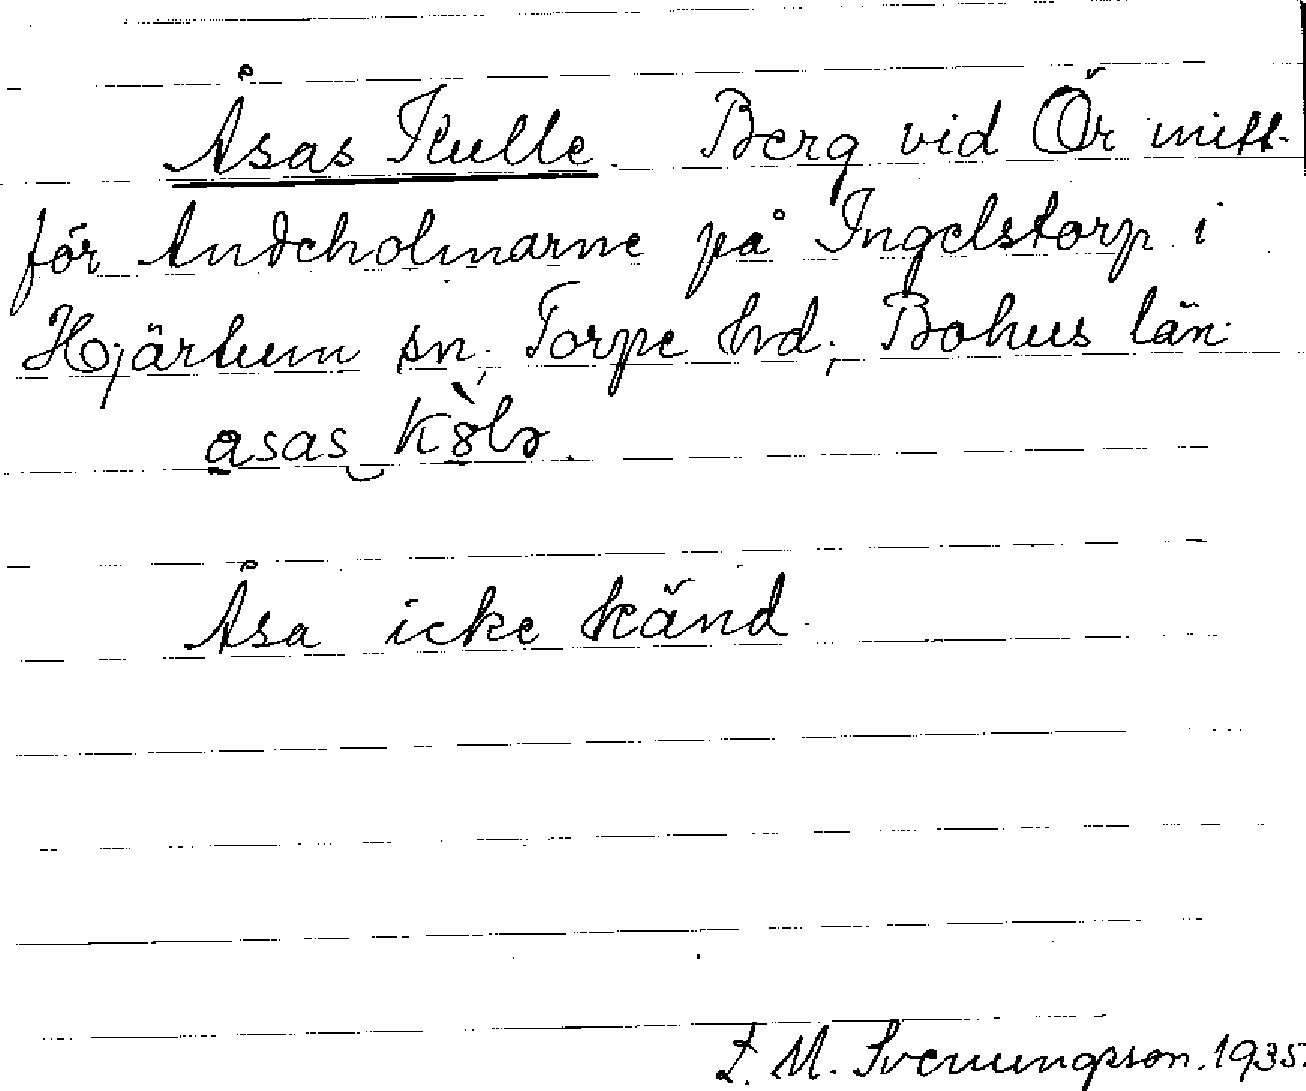 Åsas Kulle. Berg vid Ör mitt-
för Andeholmarne på Ingelstorp i
Hjärtum sn, Torpe hd; Bohus län.
asas
Åsa icke känd.
Z. M. Svenungsson. 1935.